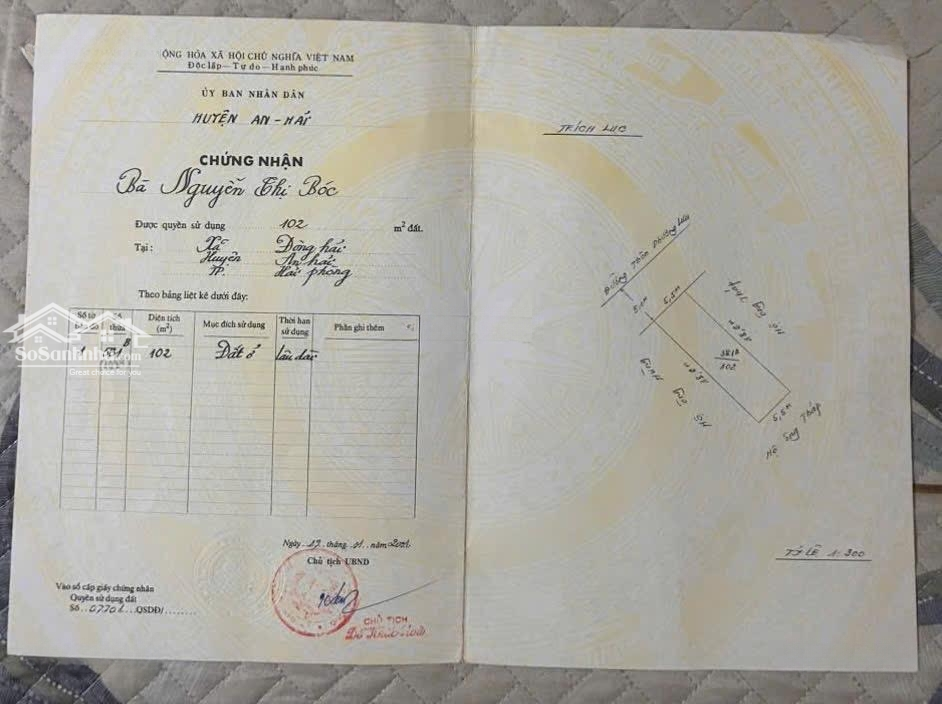 ỘNG HÒA XÃ HỘI CHỦ NGHĨA VIỆT NAM
Độc lập — Tự do — Hạnh phúc
ỦY BAN NHÂN DÂN
HUYỆN AN - HẢI
CHỨNG NHẬN
Bà Nguyễn Thị Bóc
Được quyền sử dụng 102 m² đất.
Tại : Xã Đông hải
Huyện An hải
TP. Hải phòng
Theo bảng liệt kê dưới đây:
Số tờ Số thửa Diện tích (m²) Mục đích sử dụng Thời hạn sử dụng Phần ghi thêm
1 B 102 Đất ở Lâu dài
SoSanNha
Great choice for you
Ngày 19 tháng 01 năm 2001
Chủ tịch UBND
CHỦ TỊCH
Vào sổ cấp giấy chứng nhận
Quyền sử dụng đất
Số 0770 QSDĐ/
TRÍCH LỤC
Đường Thôn Phương Lưu
5,5m
Hộ ông
18,6m
381B
102
18,6m
Hộ ông Hung
5,5m
Hộ ông Tháp
TỶ LỆ 1:300